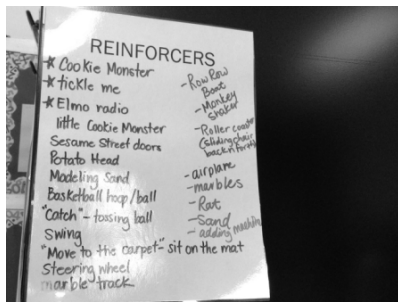 REINFORCERS
★ Cookie Monster
★ tickle me
★ Elmo radio
little Cookie Monster
Sesame Street doors
Potato Head
Modeling Sand
Basketball hoop/ball
"Catch" - tossing ball
Swing
"Move to the carpet" - sit on the mat
Steering wheel
marble track
- Row Row
Boat
- Monkey
shaker
- Roller coaster
(sliding chair
back n forth)
- airplane
- marbles
- Rat
- Sand
- adding machine